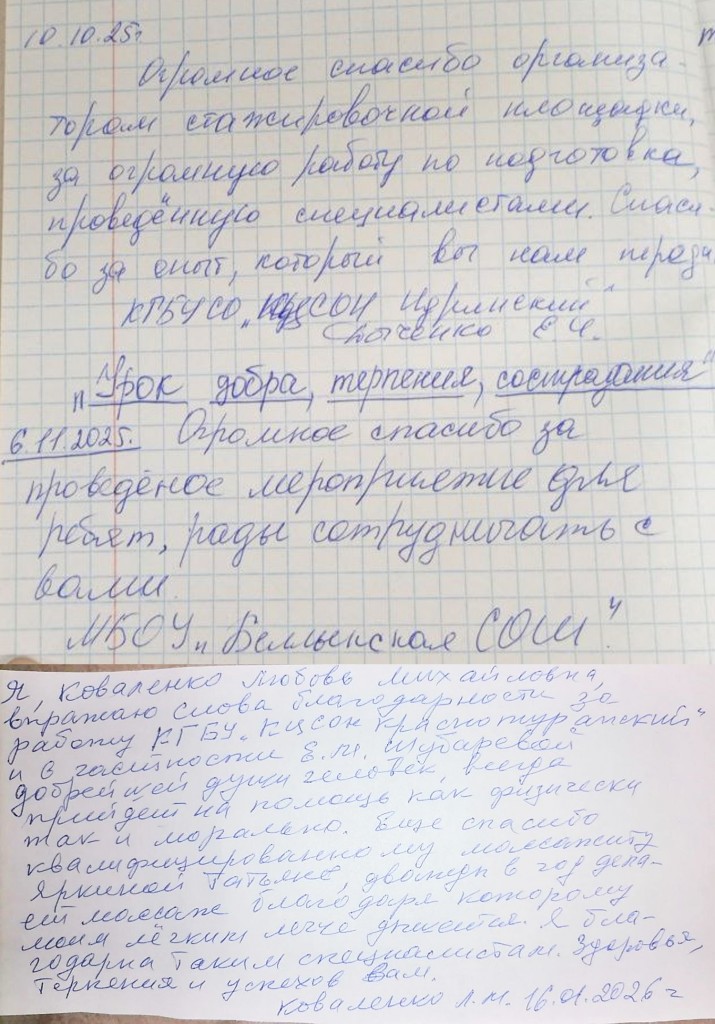 10.10.25г
Огромное спасибо организа-
торам стажировочной площадки,
за огромную работу по подготовка,
проведённую специалистами. Спаси-
бо за опыт, который вы нам переда
КГБУСО „КЦСОН Идринский"
Е.
„Урок добра, терпения, сострадания"
6.11.2025. Огромное спасибо за
проведёное мероприятие для
ребят, рады сотрудничать с
вами.
МБОУ „Беллыкская СОШ".
Я, Коваленко Любовь Михайловна,
выражаю слова благодарности за
работу КГБУ „КЦСОН Краснотуранский"
и в частности Е.М. Шубаревой
добрейшей души человек, всегда
прийдёт на помощь как физически
так и морально. Еще спасибо
квалифицированному массажисту
Яркиной Татьяне, дважды в год дела-
ет массаж благодаря которому
моим лёгким легче дышется. Я бла-
годарна таким специалистам. Здоровья,
терпения и успехов Вам.
Коваленко Л.М. 16.01.2026 г